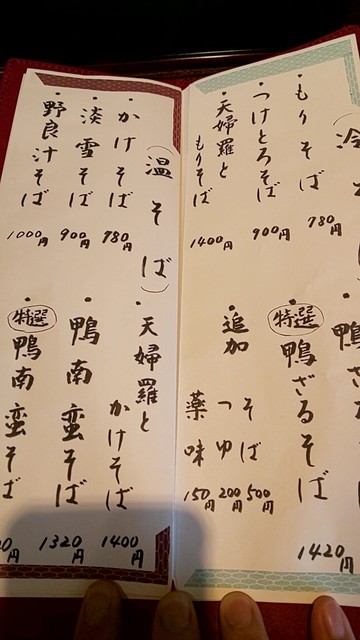 冷
もりそば 780円
つけとろそば 900円
天婦羅と
もりそば 1400円
鴨ざ
特選
鴨ざるそば 1420円
追加
そば 500円
つゆ 200円
薬味 150円
（温そば）
かけそば 780円
淡雪そば 900円
野良汁そば 1000円
天婦羅と
かけそば 1400円
鴨南蛮そば 1320円
特選
鴨南蛮そば
0円